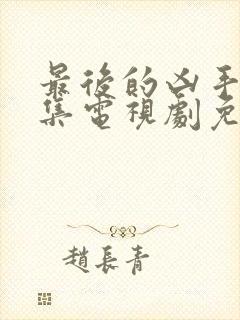 最後的凶手
集電視劇免
趙長青